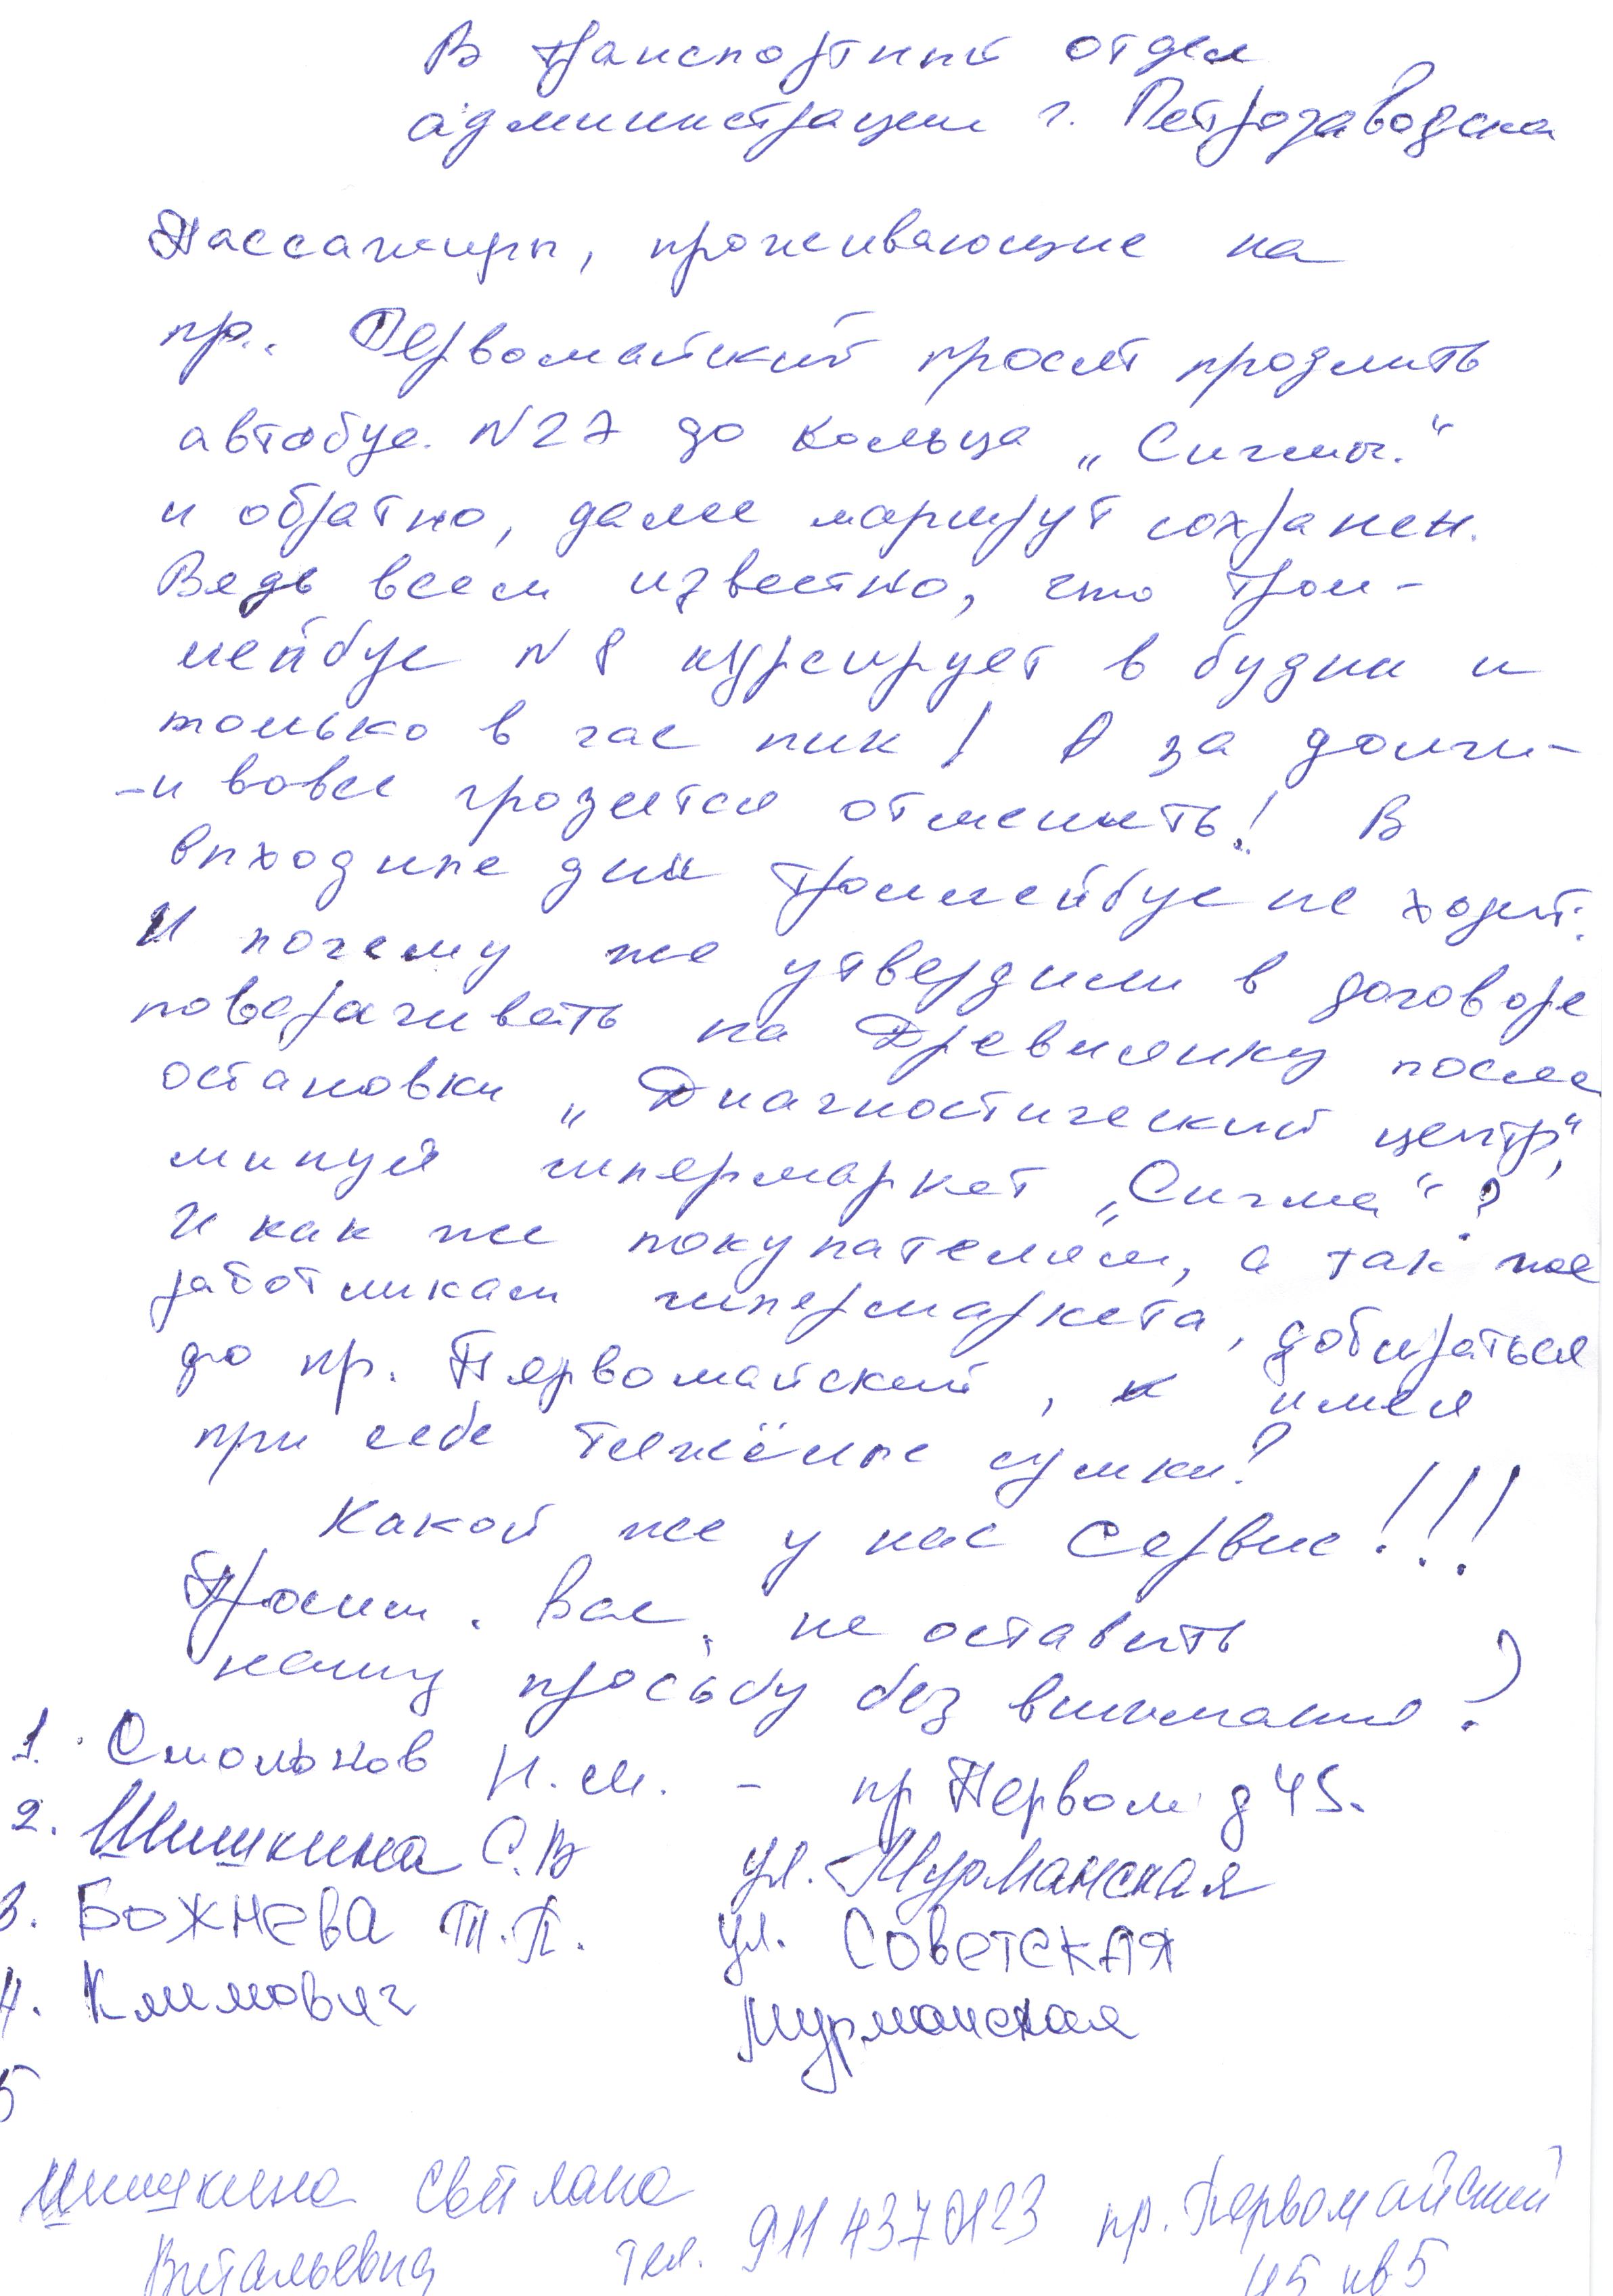 В транспортный отдел
администрации г. Петрозаводска
Пассажиры, проживающие на
пр. Первомайский просят продлить
автобус N27 до кольца „Сигмы."
и обратно, далее маршрут сохранен.
Ведь всем известно, что трол-
лейбус N8 курсирует в будни и
только в час пик! А за долги-
-и вовсе грозятся отменить! В
выходные дни троллейбус не ходит.
И почему же утвердили в договоре
поворачивать на Древлянку после
остановки „Диагностический центр",
минуя гипермаркет „Сигма"?
И как же покупателям, а так же
работникам гипермаркета, добираться
до пр. Первомайский, имея
при себе тяжёлые сумки?
Какой же у нас сервис!!!
Просим Вас, не оставить
нашу просьбу без внимания?
1. Смольков Н.М. - пр Первом д 45.
2. Шишкина С.В ул. Мурманская
3. Божнева Т.П. ул. Советская
4. Климович Мурманская
5
Шишкина Светлана
Витальевна тел. 911 4370123 пр. Первомайский
45 кв 5